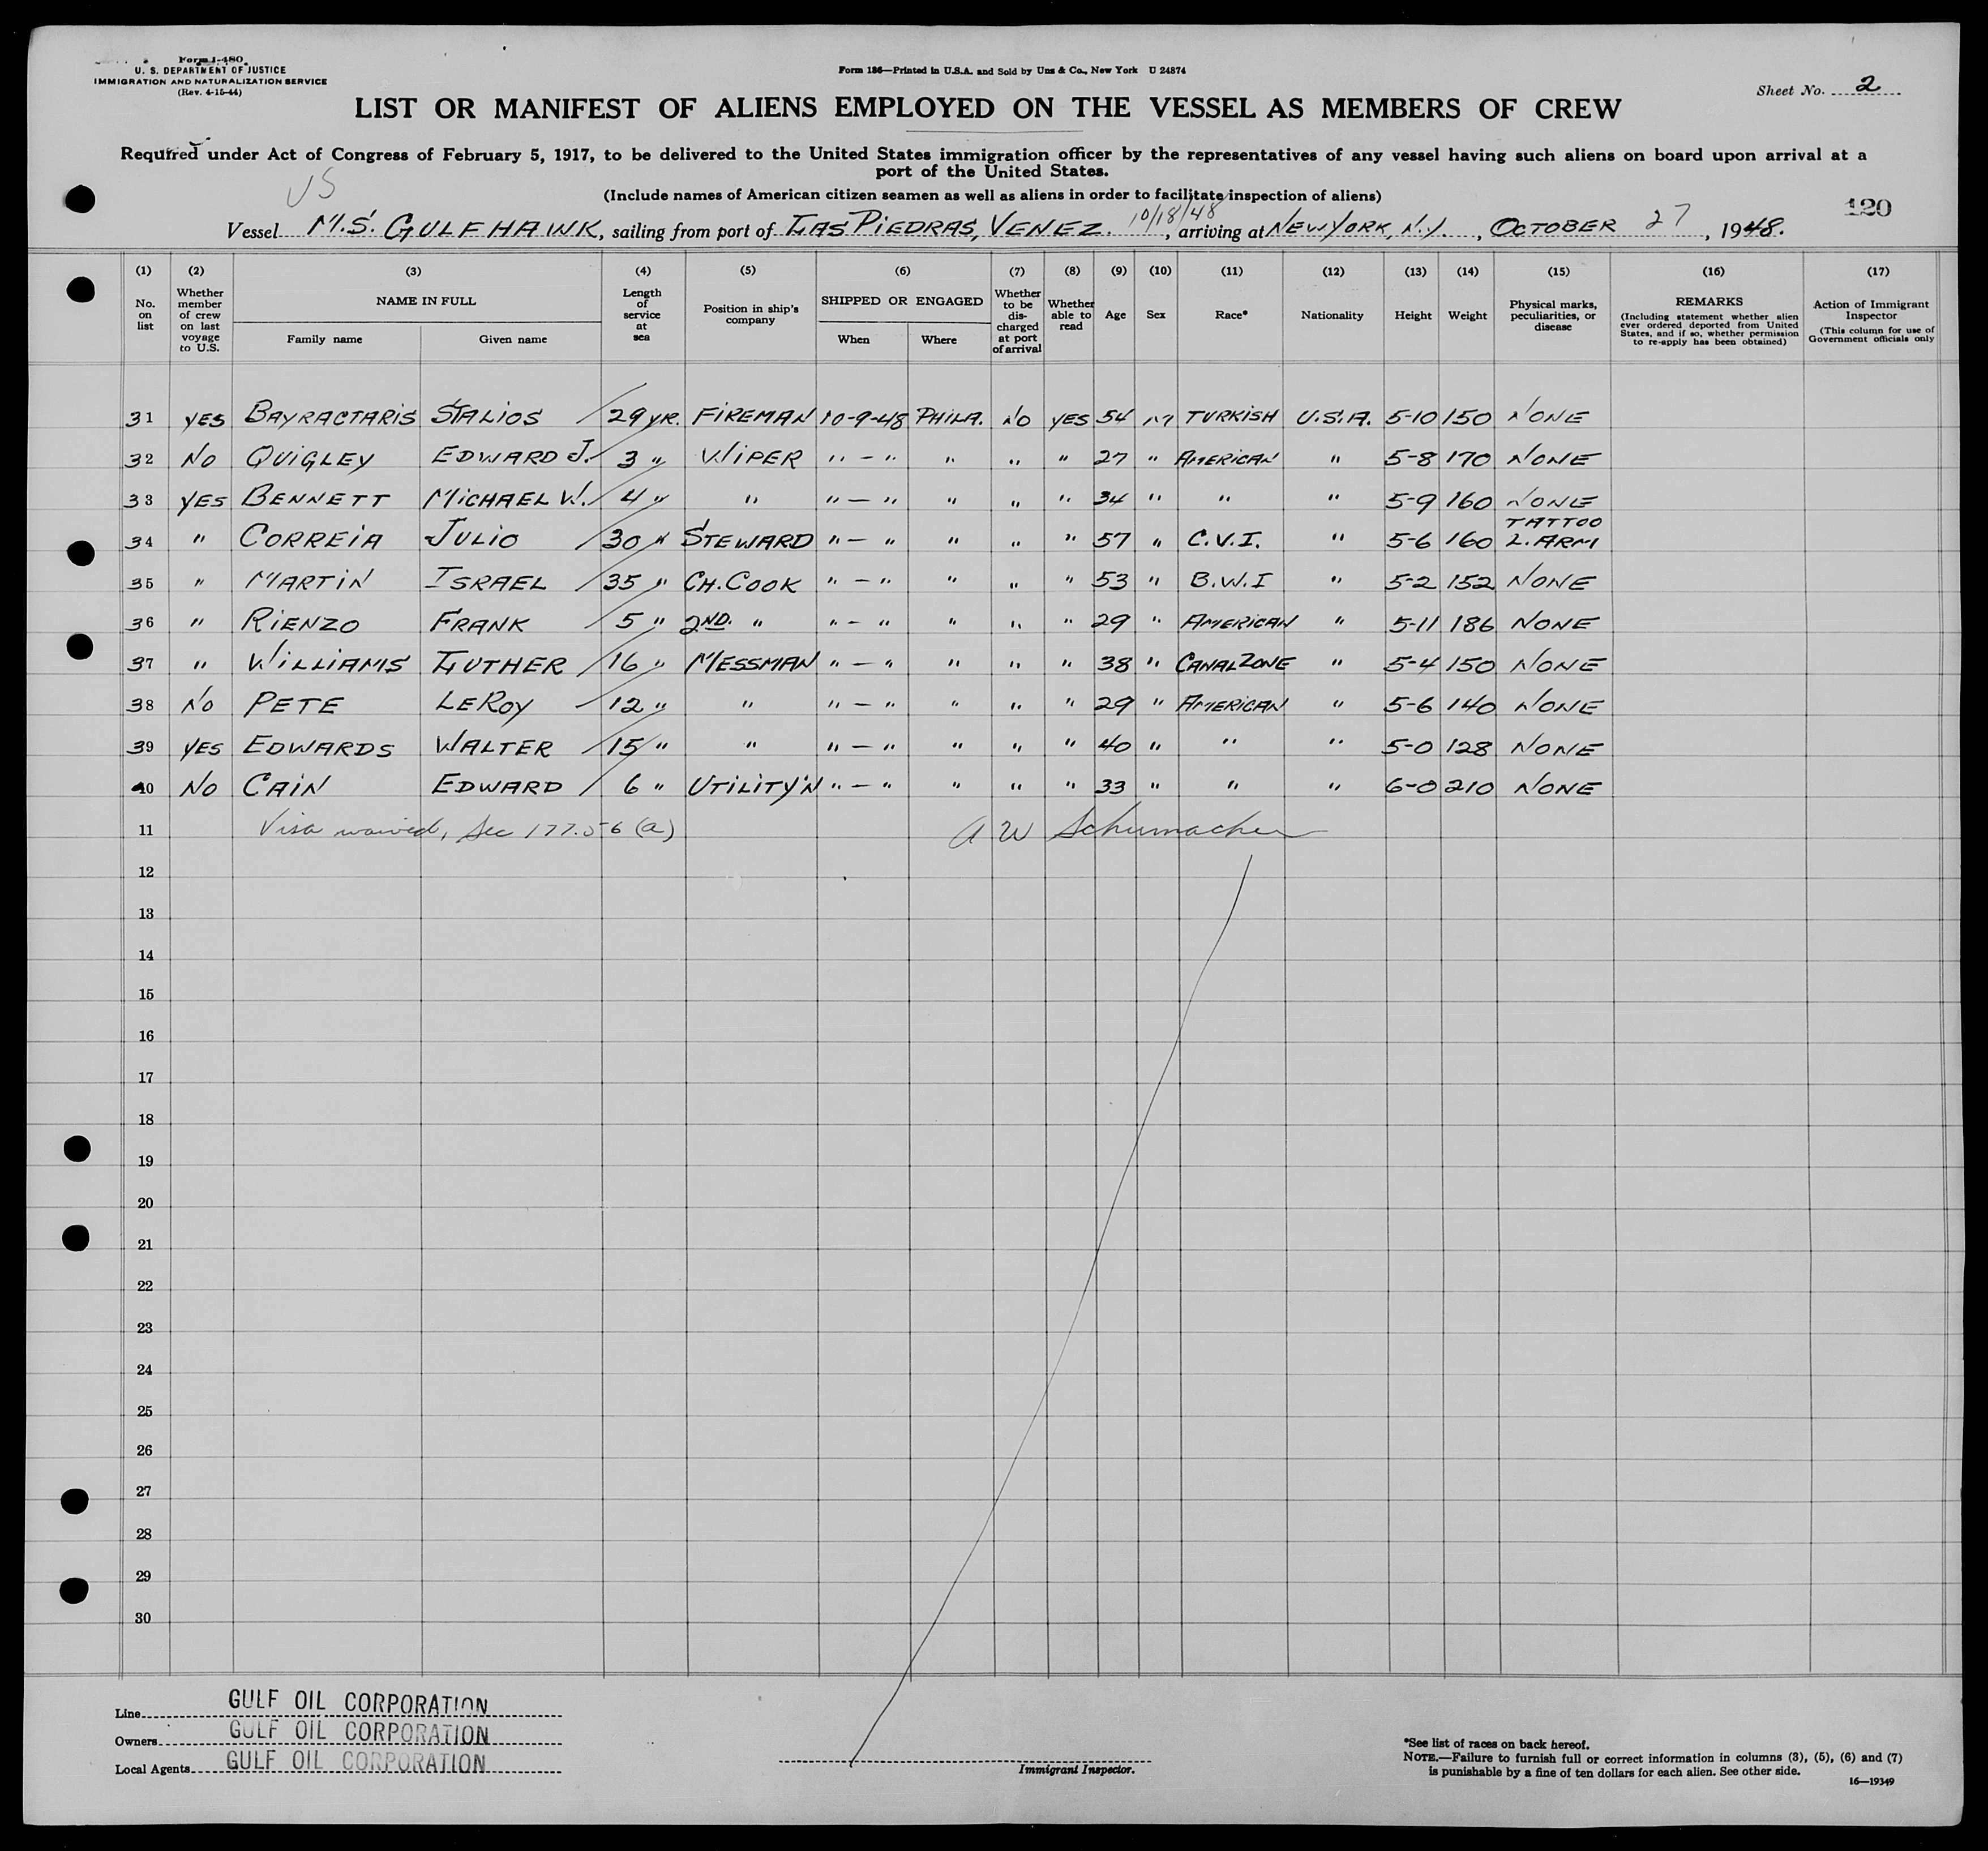 Form I-480
U. S. DEPARTMENT OF JUSTICE
IMMIGRATION AND NATURALIZATION SERVICE
(Rev. 4-15-44)
Form 186—Printed in U.S.A. and Sold by Unz & Co., New York U 24874
Sheet No. 2
LIST OR MANIFEST OF ALIENS EMPLOYED ON THE VESSEL AS MEMBERS OF CREW
Required under Act of Congress of February 5, 1917, to be delivered to the United States immigration officer by the representatives of any vessel having such aliens on board upon arrival at a
port of the United States.
(Include names of American citizen seamen as well as aliens in order to facilitate inspection of aliens)
US
120
Vessel M.S. GULFHAWK, sailing from port of LAS PIEDRAS, VENEZ. 10/18/48, arriving at NEW YORK, N.Y., OCTOBER 27, 1948.
(1) (2) (3) (4) (5) (6) (7) (8) (9) (10) (11) (12) (13) (14) (15) (16) (17)
No. on list
Whether member of crew on last voyage to U.S.
NAME IN FULL
Family name Given name
Length of service at sea
Position in ship's company
SHIPPED OR ENGAGED
When Where
Whether to be discharged at port of arrival
Whether able to read
Age Sex Race* Nationality Height Weight
Physical marks, peculiarities, or disease
REMARKS
(Including statement whether alien ever ordered deported from United States, and if so, whether permission to re-apply has been obtained)
Action of Immigrant Inspector
(This column for use of Government officials only
31 YES BAYRACTARIS STALIOS / 29 YR. FIREMAN 10-9-48 PHILA. NO YES 54 M TURKISH U.S.A. 5-10 150 NONE
32 NO QUIGLEY EDWARD J. / 3 " WIPER " - " " " " 27 " AMERICAN " 5-8 170 NONE
33 YES BENNETT MICHAEL W. / 4 " " " - " " " " 34 " " " 5-9 160 NONE
34 " CORREIA JULIO / 30 " STEWARD " - " " " " 57 " C.V.I. " 5-6 160 TATTOO L. ARM
35 " MARTIN ISRAEL / 35 " CH. COOK " - " " " " 53 " B.W.I " 5-2 152 NONE
36 " RIENZO FRANK / 5 " 2ND. " " - " " " " 29 " AMERICAN " 5-11 186 NONE
37 " WILLIAMS LUTHER / 16 " MESSMAN " - " " " " 38 " CANAL ZONE " 5-4 150 NONE
38 NO PETE LEROY / 12 " " " - " " " " 29 " AMERICAN " 5-6 140 NONE
39 YES EDWARDS WALTER / 15 " " " - " " " " 40 " " " 5-0 128 NONE
40 NO CAIN EDWARD / 6 " UTILITY'N " - " " " " 33 " " " 6-0 210 NONE
11 Visa waived, Sec 177.56 (a) A W Schumacher
12
13
14
15
16
17
18
19
20
21
22
23
24
25
26
27
28
29
30
Line GULF OIL CORPORATION
Owners GULF OIL CORPORATION
Local Agents GULF OIL CORPORATION
Immigrant Inspector.
*See list of races on back hereof.
NOTE.—Failure to furnish full or correct information in columns (3), (5), (6) and (7)
is punishable by a fine of ten dollars for each alien. See other side.
16—19349